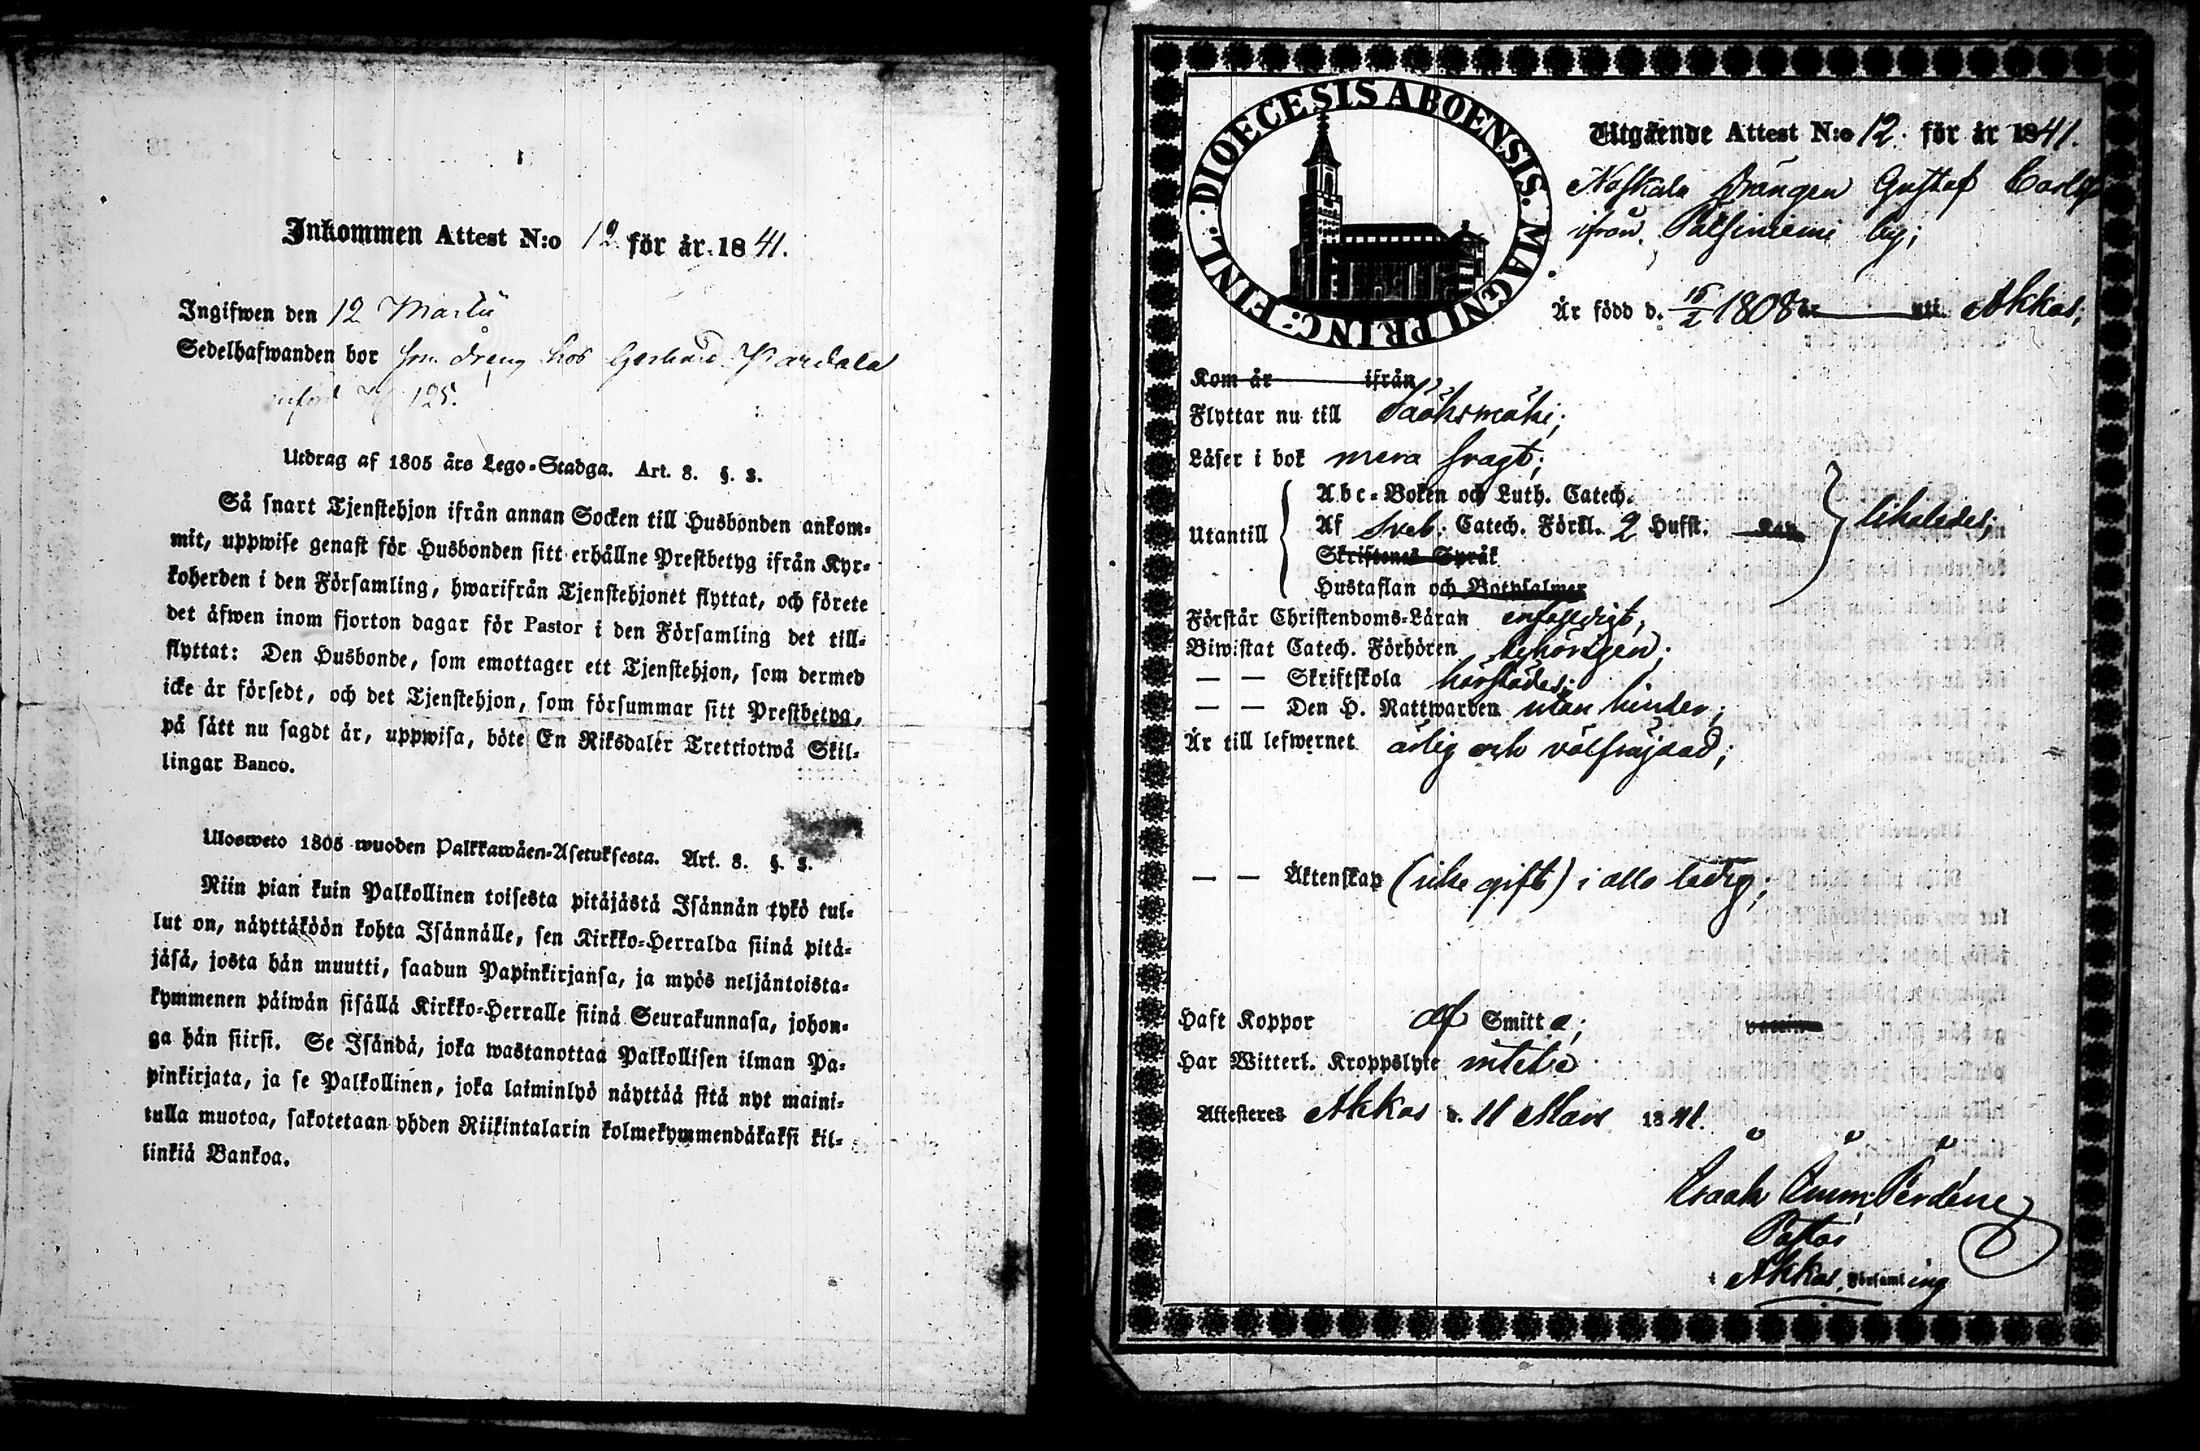 Inkommen Attest N:o 12 för år 1841.
Ingifwen den 12 Martii
Sedelhafwanden bor som dreng hos
125.
Utdrag af 1805 års Lego-Stadga. Art. 8. §. 3.
Så snart Tjenstehjon ifrån annan Socken till Husbonden ankom-
mit, uppwise genast för Husbonden sitt erhållne Prestbetyg ifrån Kyr-
koherden i den Församling, hwarifrån Tjenstehjonet flyttat, och förete
det äfwen inom fjorton dagar för Pastor i den Församling det till-
flyttat: Den Husbonde, som emottager ett Tjenstehjon, som dermed
icke är försedt, och det Tjenstehjon, som försummar sitt Prestbetyg,
på sätt nu sagdt är, uppwisa, böte En Riksdaler Trettiotwå Skil-
lingar Banco.
Ulosweto 1805 wuoden Palkkawäen-Asetuksesta. Art. 8. §. 3.
Niin pian kuin Palkollinen toisesta pitäjästä Isännän tykö tul-
lut on, näyttäköön kohta Isännälle, sen Kirkko-Herralda siinä pitä-
jäsä, josta hän muutti, saadun Papinkirjansa, ja myös neljäntoista-
kymmenen päiwän sisällä Kirkko-Herralle siinä Seurakunnasa, johon-
ga hän siirsi. Se Isändä, joka wastanottaa Palkollisen ilman Pa-
pinkirjata, ja se Palkollinen, joka laiminlyö näyttää sitä nyt maini-
tulla muotoa, sakotetaan yhden Riikintalarin kolmekymmendäkaksi kil-
linkiä Bankoa.
DIOECESIS ABOENSIS. MAGNI PRINC: FINL.
Utgående Attest N:o 12. för år 1841.
Drängen Gustaf Carls
ifrån by;
Är född d. 15/2 1808 uti Akkas;
Kom år ifrån
Flyttar nu till Sääksmäki;
Läser i bok mera svagt;
Abc-Boken och Luth. Catech.
Utantill Af Sveb. Catech. Förkl. 2 Hufst. Kap. likaledes;
Skriftenes Språk
Hustaflan och Botpsalmer
Förstår Christendoms-Läran enfaldigt;
Biwistat Catech. Förhören behörigen;
— — Skriftskola härstädes;
— — Den H. Nattwarden utan hinder;
Är till lefwernet ärlig och välfrejdad;
— — Äktenskap (icke gift) i allo ledig;
Haft Koppor af Smitta; vaccin
Har Witterl. Kroppslyte intet;
Attesteres Akkas d. 11 Mars 1841.
Isaak Emm:
Pastor
i Akkas Församling